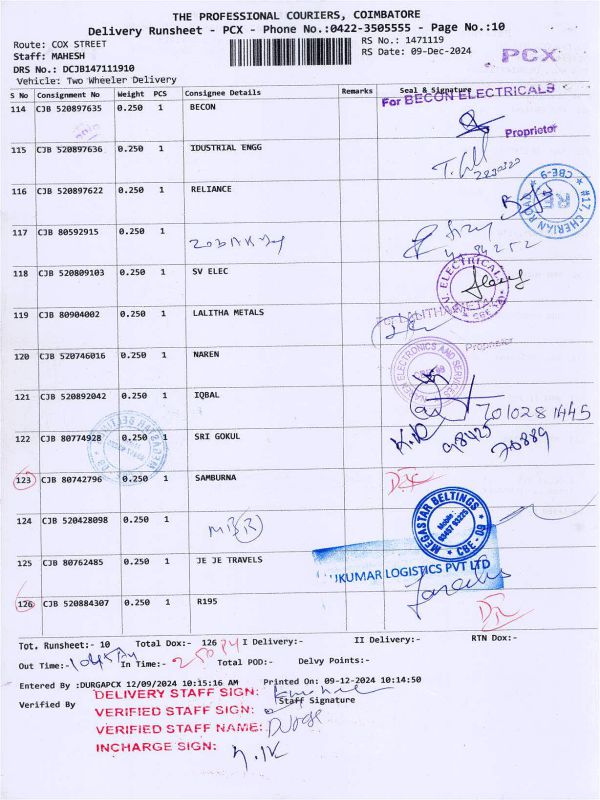 THE PROFESSIONAL COURIERS, COIMBATORE
Delivery Runsheet - PCX - Phone No.:0422-3505555 - Page No.:10
Route: COX STREET
RS No.: 1471119
Staff: MAHESH
RS Date: 09-Dec-2024
PCX
DRS No.: DCJB147111910
Vehicle: Two Wheeler Delivery
S No Consignment No Weight PCS Consignee Details Remarks Seal & Signature
114 CJB 520897635 0.250 1 BECON
For BECON ELECTRICALS
Proprietor
115 CJB 520897636 0.250 1 IDUSTRIAL ENGG
116 CJB 520897622 0.250 1 RELIANCE
#17, CHERIAN ROAD * CBE-9 *
117 CJB 80592915 0.250 1
118 CJB 520809103 0.250 1 SV ELEC
119 CJB 80904002 0.250 1 LALITHA METALS
For LALITHA METALS
Proprietor
120 CJB 520746016 0.250 1 NAREN
ELECTRONICS AND SERVICES
121 CJB 520892042 0.250 1 IQBAL
7010281445
122 CJB 80774928 0.250 1 SRI GOKUL
98425
70889
123 CJB 80742796 0.250 1 SAMBURNA
124 CJB 520428098 0.250 1
MEGASTAR BELTINGS
Mobile :
93457 93225
* CBE - 09 *
125 CJB 80762485 1 JE JE TRAVELS
UKUMAR LOGISTICS PVT LTD
126 CJB 520884307 0.250 1 R195
Tot. Runsheet:- 10 Total Dox:- 126 I Delivery:- II Delivery:- RTN Dox:-
Out Time:- In Time:- Total POD:- Delvy Points:-
Entered By :DURGAPCX 12/09/2024 10:15:16 AM Printed On: 09-12-2024 10:14:50
Verified By Staff Signature
DELIVERY STAFF SIGN:
VERIFIED STAFF SIGN:
VERIFIED STAFF NAME:
INCHARGE SIGN: